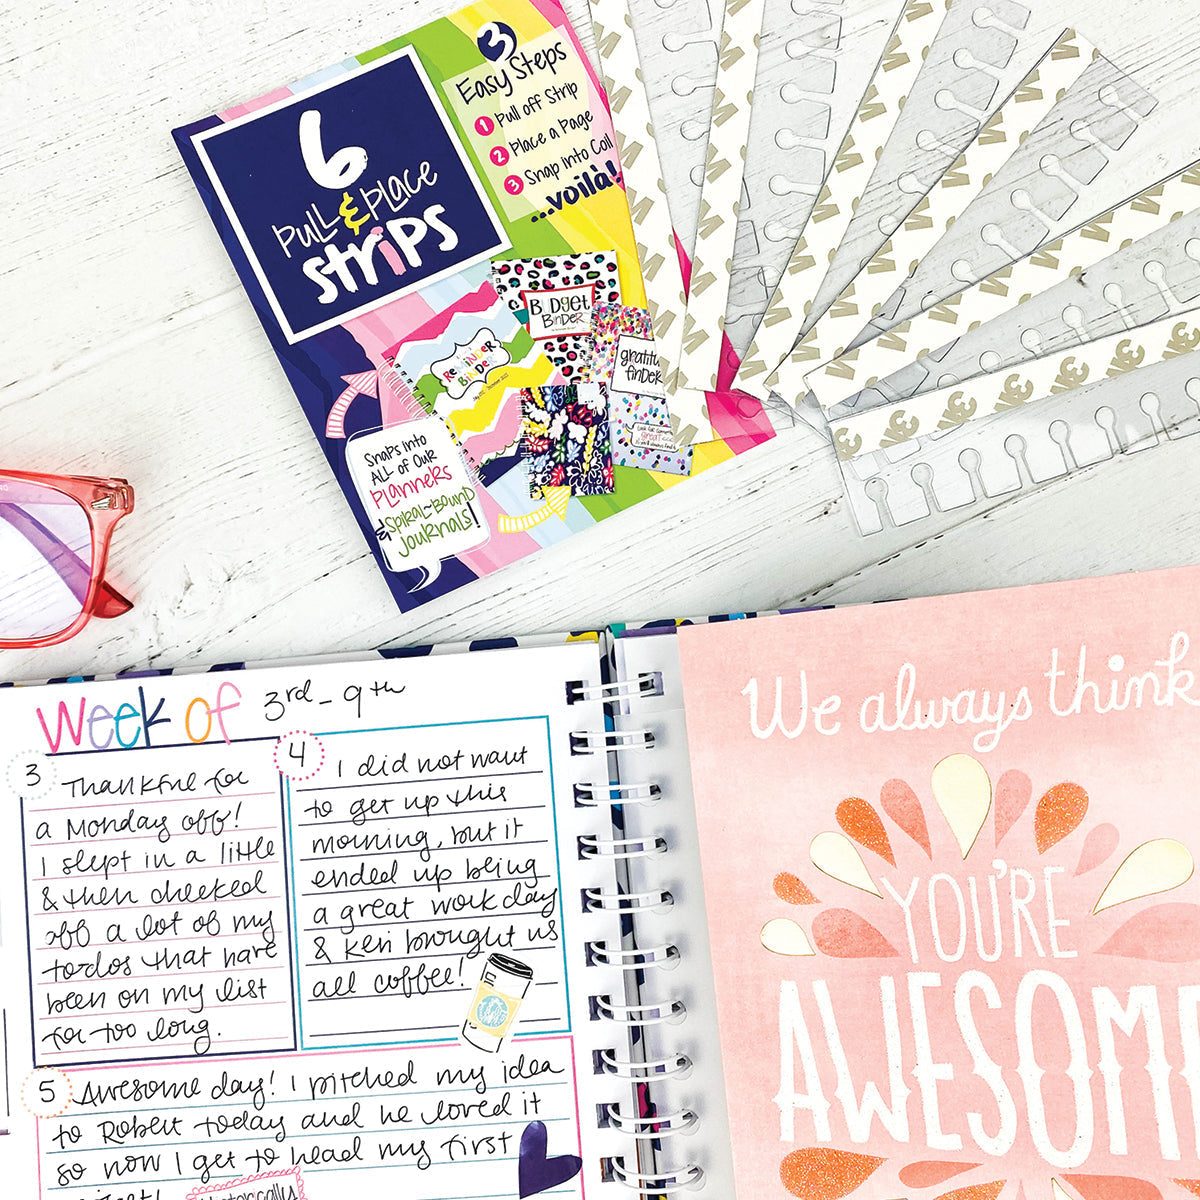 6
Pull & Place
Strips
3
Easy Steps
1 Pull off Strip
2 Place a Page
3 Snap into Coil
...voilà!
Budget
Binder
Reminder
Binder
gratitude
finder
Snaps into
ALL of our
Planners
& Spiral-Bound
Journals!
Week of 3rd - 9th
3 Thankful for
a Monday off!
I slept in a little
& then checked
off a lot of my
to-dos that have
been on my list
for too long.
4 I did not want
to get up this
morning, but it
ended up being
a great work day
& Keri brought us
all coffee!
5 Awesome day! I pitched my idea
to Robert today and he loved it
so now I get to head my first
Historically
We always think
YOU'RE
AWESOME